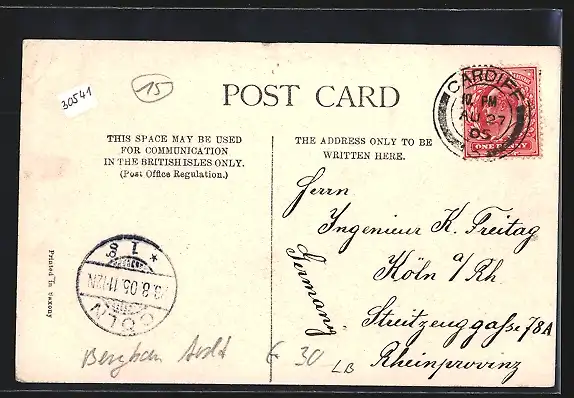 30541
15
POST CARD
CARDIFF
10. PM
AU 27
05
ONE PENNY
THIS SPACE MAY BE USED
FOR COMMUNICATION
IN THE BRITISH ISLES ONLY.
(Post Office Regulation.)
THE ADDRESS ONLY TO BE
WRITTEN HERE.
Herrn
Ingenieur K. Freitag
Köln a/Rh
Streitzeuggasse 78A
Rheinprovinz
Germany.
Printed in Saxony
1
.8.05.11-12N
CÖLN
€ 30
LB